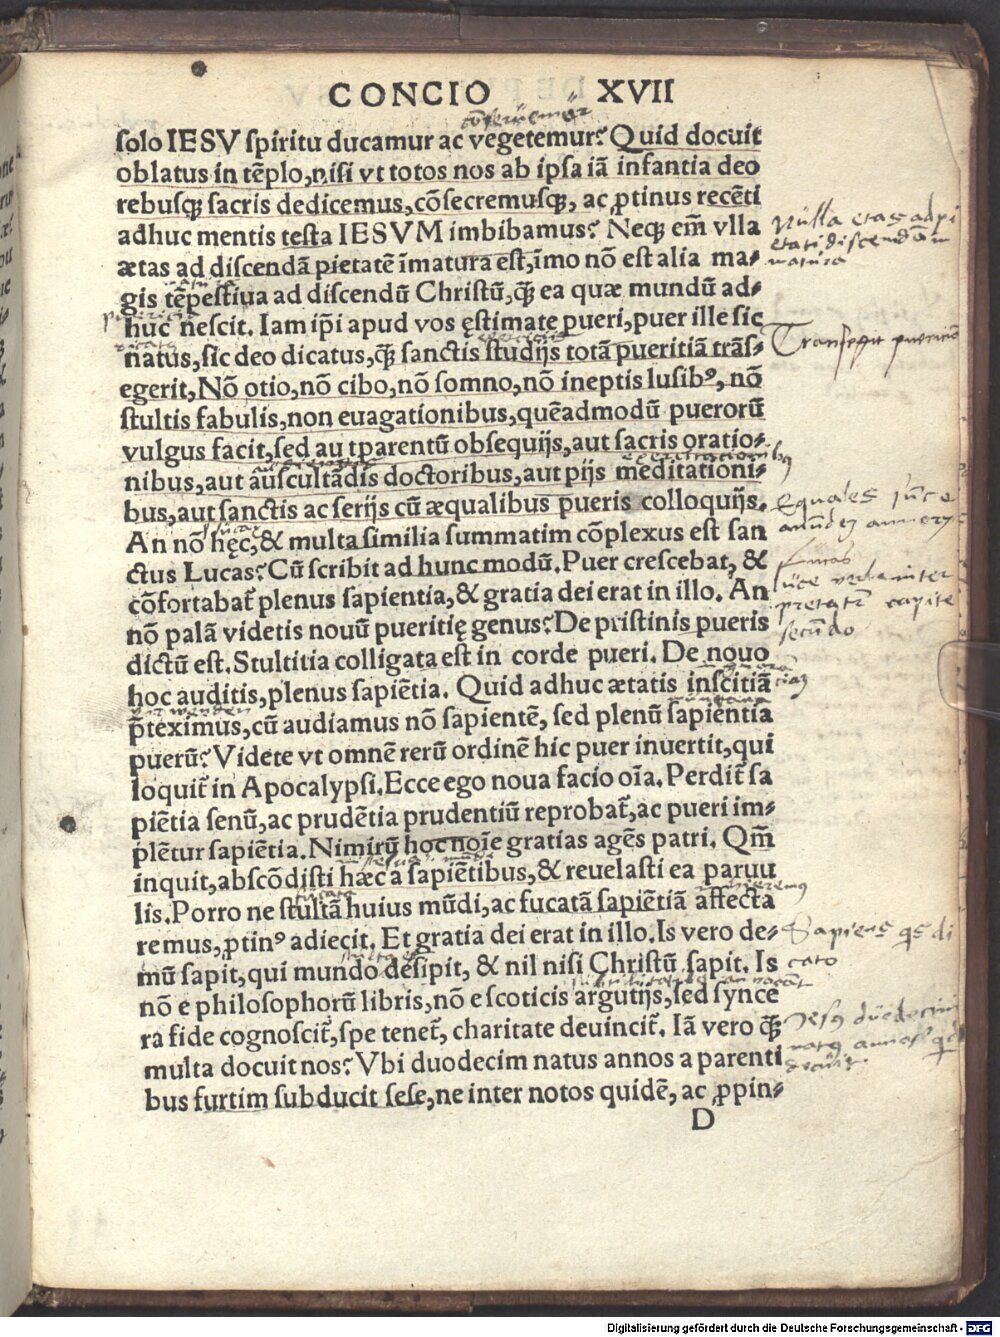 CONCIO XVII
ſolo IESV ſpiritu ducamur ac vegetemur? Quid docuit
oblatus in tẽplo, niſi vt totos nos ab ipſa iã infantia deo
rebusqꝫ ſacris dedicemus, cõſecremusqꝫ, ac ꝓtinus recẽti
adhuc mentis teſta IESVM imbibamus? Neqꝫ em̃ vlla
ætas ad diſcendã pietatẽ ĩmatura eſt, ĩmo nõ eſt alia ma⸗
gis tẽpeſtiua ad diſcendũ Chriſtũ, q̃ꝫ ea quæ mundũ ad⸗
huc neſcit. Iam ip̃i apud vos ęſtimate pueri, puer ille ſic
natus, ſic deo dicatus, q̃ꝫ ſanctis ſtudijs totã pueritiã trãſ⸗
egerit, Nõ otio, nõ cibo, nõ ſomno, nõ ineptis luſibꝰ, nõ
ſtultis fabulis, non euagationibus, quẽadmodũ puerorũ
vulgus facit, ſed au tparentũ obſequijs, aut ſacris oratio⸗
nibus, aut auſcultãdis doctoribus, aut pijs meditationi⸗
bus, aut ſanctis ac ſerijs cũ æqualibus pueris colloquijs.
An nõ hęc, & multa ſimilia ſummatim cõplexus eſt ſan
ctus Lucas? Cũ ſcribit ad hunc modũ. Puer creſcebat, &
cõfortabat̃ plenus ſapientia, & gratia dei erat in illo. An
nõ palã videtis nouũ pueritię genus? De priſtinis pueris
dictũ eſt. Stultitia colligata eſt in corde pueri. De nouo
hoc auditis, plenus ſapiẽtia. Quid adhuc ætatis inſcitiã
p̃teximus, cũ audiamus nõ ſapientẽ, ſed plenũ ſapientia
puerũ? Videte vt omnẽ rerũ ordinẽ hic puer inuertit, qui
loquit̃ in Apocalypſi. Ecce ego noua facio oĩa. Perdit̃ ſa
piẽtia ſenũ, ac prudẽtia prudentiũ reprobat̃, ac pueri im⸗
plẽtur ſapiẽtia. Nimirũ hoc noĩe gratias agẽs patri. Qm̃
inquit, abſcõdiſti hæc a ſapiẽtibus, & reuelaſti ea paruu
lis. Porro ne ſtultã huius mũdi, ac fucatã ſapiẽtiã affecta
remus, ꝓtinꝰ adiecit. Et gratia dei erat in illo. Is vero de⸗
mũ ſapit, qui mundo deſipit, & nil niſi Chriſtũ ſapit. Is
nõ e philoſophorũ libris, nõ e ſcoticis argutijs, ſed ſynce
ra fide cognoſcit̃, ſpe tenet̃, charitate deuincit̃. Iã vero q̃ꝫ
multa docuit nos? Vbi duodecim natus annos a parenti
bus furtim ſubducit ſeſe, ne inter notos quidẽ, ac ꝓpin⸗
D
Nulla etas ad pi
etati diſcendã im
matura
Tranſegit puericiã
Sapiens
Digitalisierung gefördert durch die Deutsche Forschungsgemeinschaft - DFG